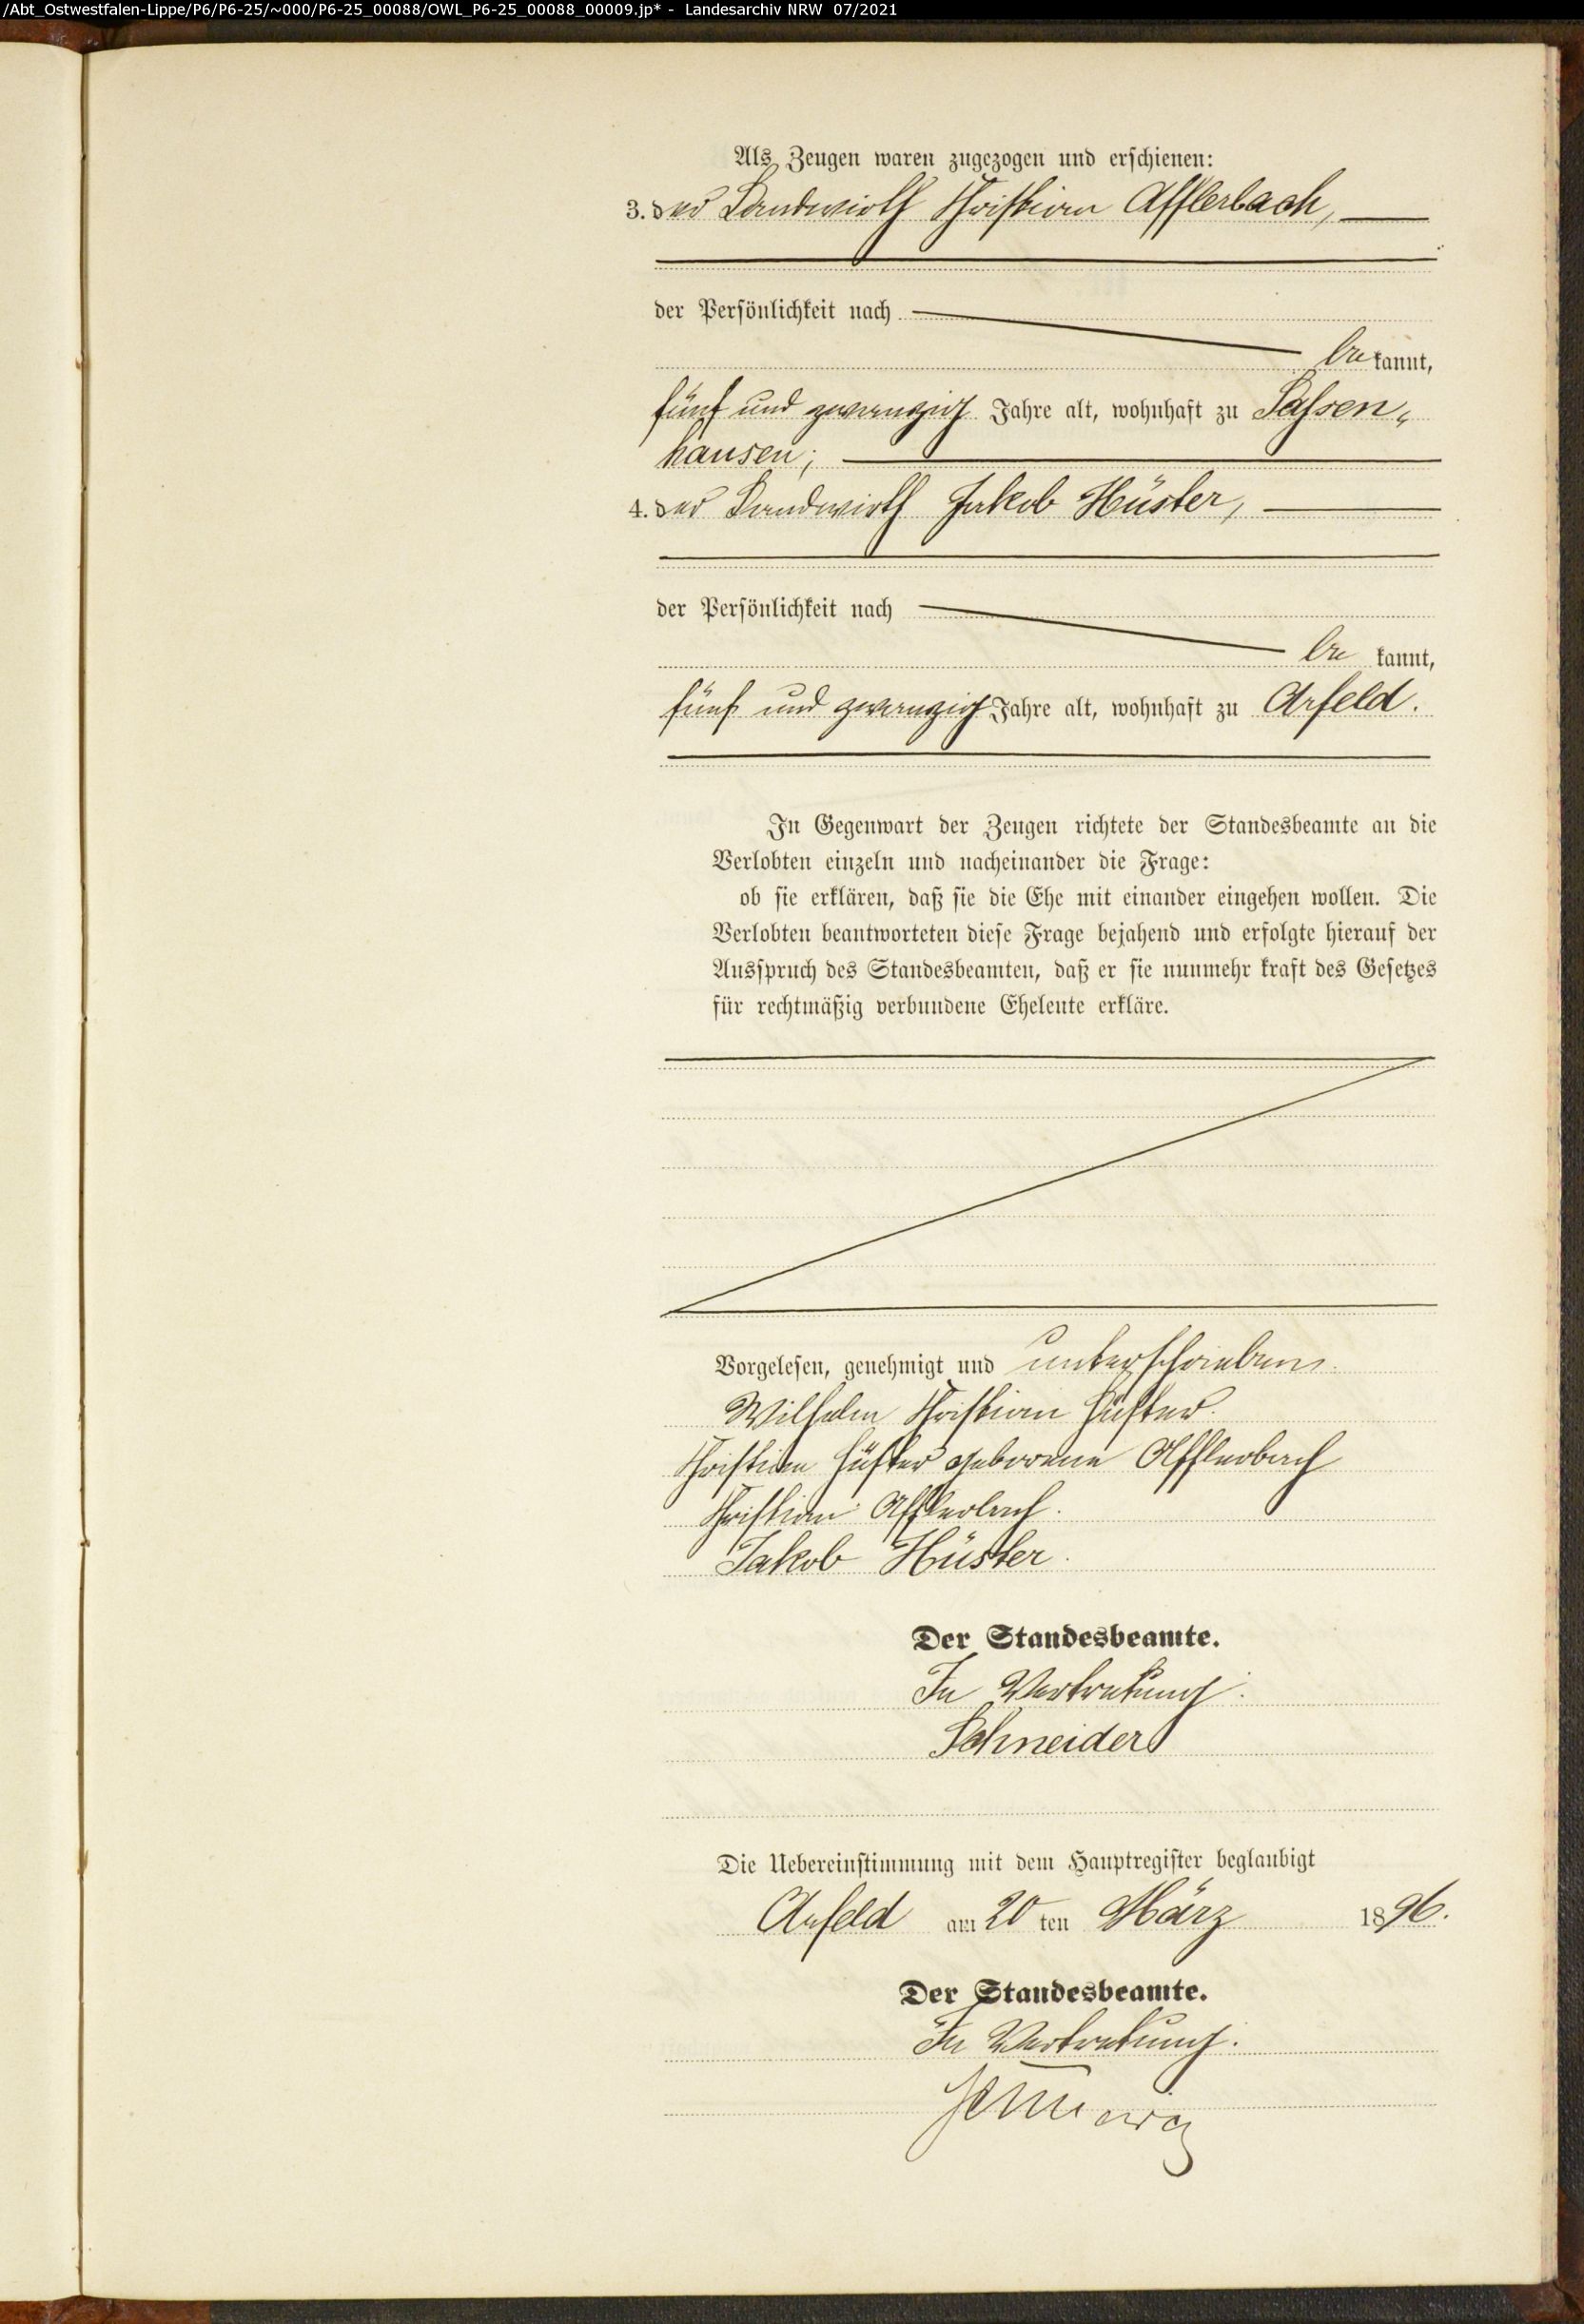 /Abt_Ostwestfalen-Lippe/P6/P6-25/~000/P6-25_00088/OWL_P6-25_00088_00009.jp* - Landesarchiv NRW 07/2021
Als Zeugen waren zugezogen und erschienen:
3. der Landwirth Christian Afflerbach,
der Persönlichkeit nach
bekannt,
fünf und zwanzig Jahre alt, wohnhaft zu Sassen„
hausen;
4. der Landwirth Jakob Hüster,
der Persönlichkeit nach
be kannt,
fünf und zwanzig Jahre alt, wohnhaft zu Arfeld.
In Gegenwart der Zeugen richtete der Standesbeamte an die
Verlobten einzeln und nacheinander die Frage:
ob sie erklären, daß sie die Ehe mit einander eingehen wollen. Die
Verlobten beantworteten diese Frage bejahend und erfolgte hierauf der
Ausspruch des Standesbeamten, daß er sie nunmehr kraft des Gesetzes
für rechtmäßig verbundene Eheleute erkläre.
Vorgelesen, genehmigt und unterschrieben.
Wilhelm Christian Hüster.
Christine Hüster geborene Afflerbach
Christian Afflerbach.
Jakob Hüster.
Der Standesbeamte.
In Vertretung:
Schneider
Die Uebereinstimmung mit dem Hauptregister beglaubigt
Arfeld am 20 ten März 1896.
Der Standesbeamte.
In Vertretung.